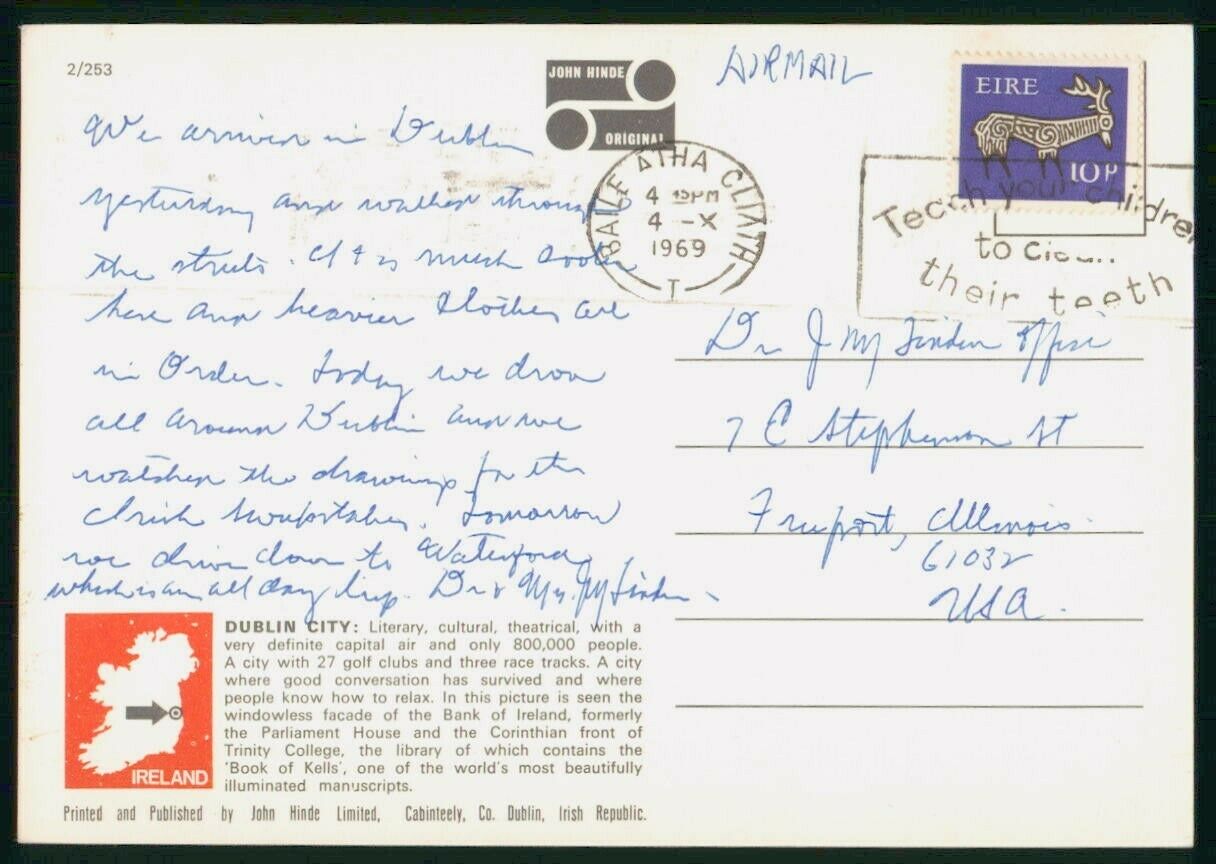 2/253
JOHN HINDE
ORIGINAL
AIRMAIL
EIRE
10P
BAILE ÁTHA CLIATH
4 45PM
4 -X
1969
T
Teach your children
to
their teeth
We arrived in Dublin
yesterday and walked through
the streets. It is much cooler
here and heavier clothes are
in Order. Today we drove
all around Dublin and we
watched the drawings for the
Irish Sweepstakes. Tomorrow
we drive down to Waterford
which is an all day trip. Dr & Mrs. JM Linden
Dr J M Linden Office
7 E Stephenson St
Freeport, Illinois.
61032
USA.
IRELAND
DUBLIN CITY: Literary, cultural, theatrical, with a
very definite capital air and only 800,000 people.
A city with 27 golf clubs and three race tracks. A city
where good conversation has survived and where
people know how to relax. In this picture is seen the
windowless facade of the Bank of Ireland, formerly
the Parliament House and the Corinthian front of
Trinity College, the library of which contains the
'Book of Kells', one of the world's most beautifully
illuminated manuscripts.
Printed and Published by John Hinde Limited, Cabinteely, Co. Dublin, Irish Republic.